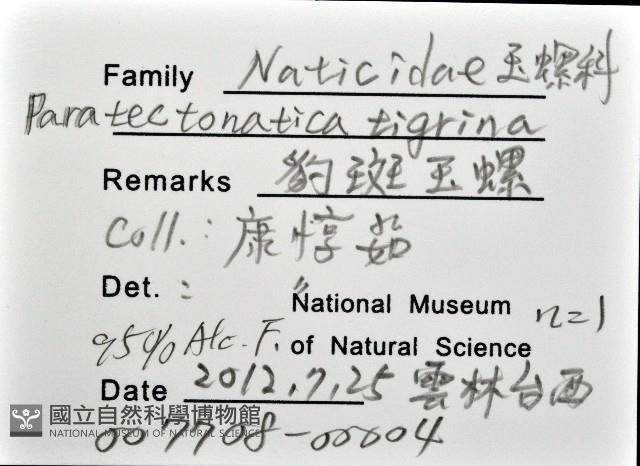 Family Naticidae 玉螺科
Paratectonatica tigrina
Remarks 豹斑玉螺
Coll.: 康惇茹
Det.: National Museum n=1
95% Alc. F. of Natural Science
Date 2012.7.25 雲林台西
國立自然科學博物館
NATIONAL MUSEUM OF NATURAL SCIENCE
007708-00004